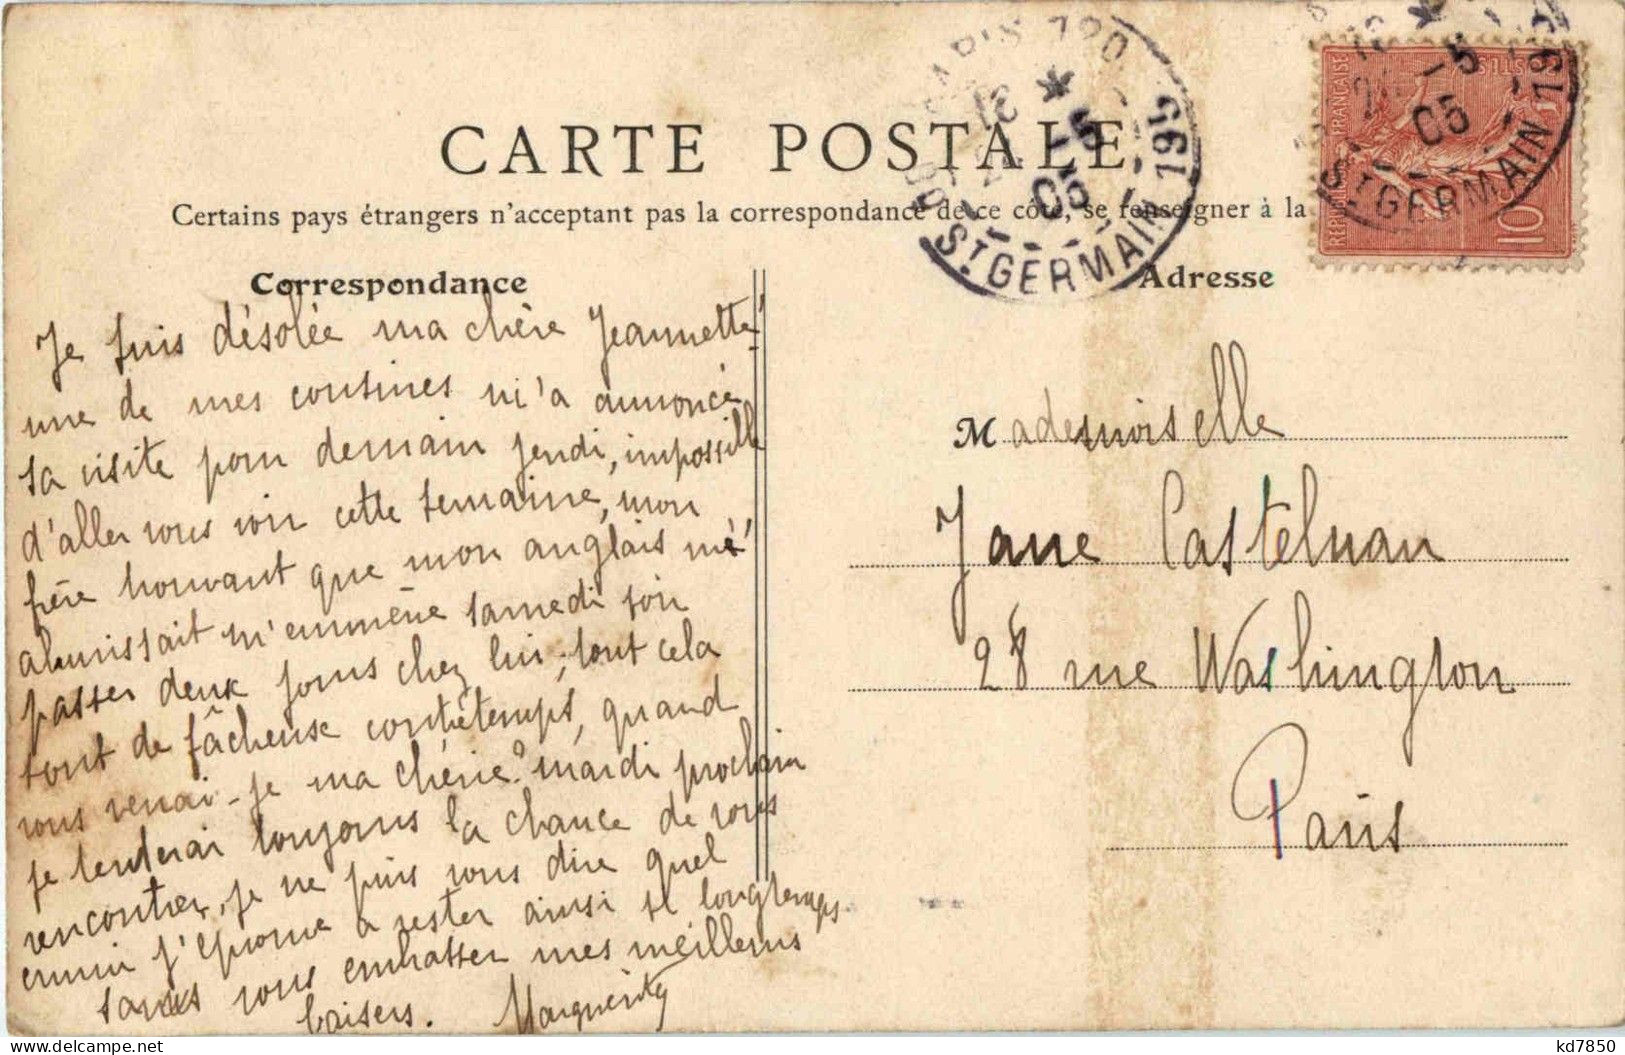 CARTE POSTALE
Certains pays étrangers n'acceptent pas la correspondance de ce côté, se renseigner à la
Correspondance
Je suis désolée ma chère Jeannette
une de mes cousines m'a annoncé
sa visite pour demain jeudi, impossible
d'aller vous voir cette semaine, mon
frère trouvant que mon anglais m'é
ahurissait m'emmène samedi soir
passer deux jours chez lui; tout cela
sont de fâcheux contretemps, quand
vous verrai-je ma chérie? mardi prochain
je tenterai toujours la chance de vous
rencontrer, je ne puis vous dire quel
ennui j'éprouve à rester ainsi si longtemps
sans vous embrasser mes meilleurs
baisers. Marguerite
Adresse
Mademoiselle
Jane Castelnau
28 rue Washington
Paris
PARIS
ST GERMAIN 195
5
05
REPUBLIQUE FRANCAISE
POSTES
10
ST GERMAIN 195
5
05
kd7850